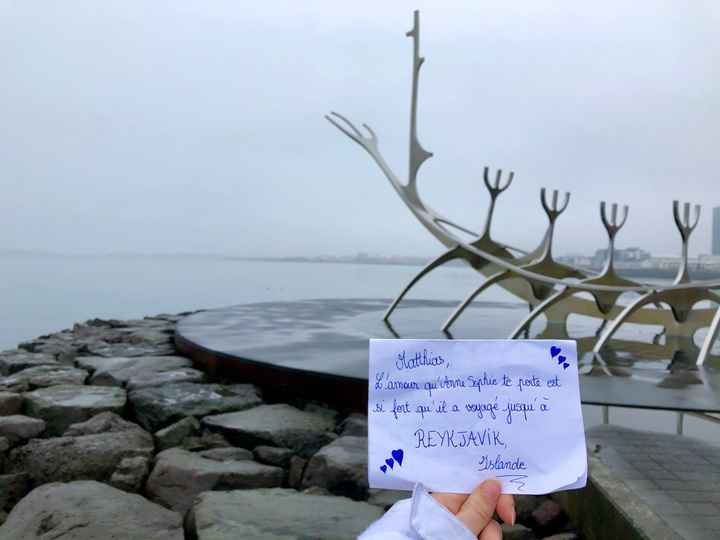 Matthias,
L'amour qu'Anne Sophie te porte est
si fort qu'il a voyagé jusqu'à
REYKJAVIK,
Islande